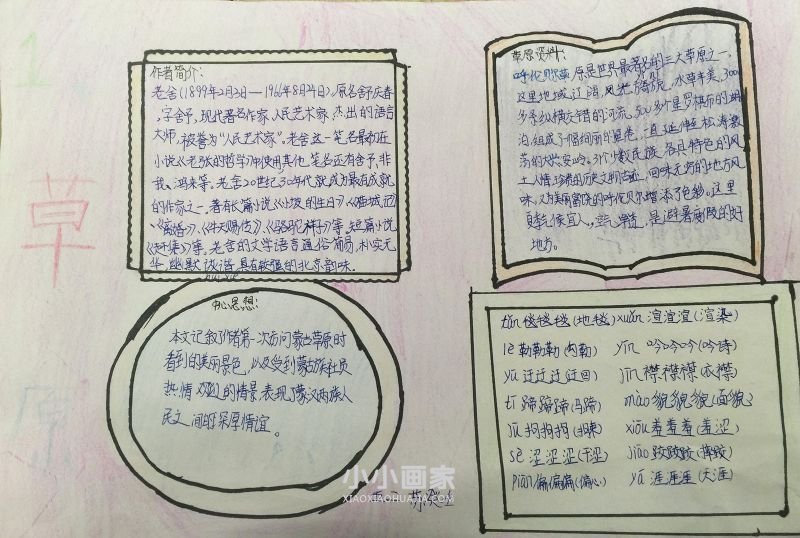 1
草
原
作者简介:
老舍(1899年2月3日—1966年8月24日),原名舒庆春
字舍予,现代著名作家,人民艺术家,杰出的语言
大师,被誉为"人民艺术家"。老舍这一笔名最初在
小说《老张的哲学》中使用其他笔名还有舍予、非
我、鸿来等。老舍20世纪30年代就成为最有成就
的作家之一。著有长篇小说《小坡的生日》《猫城记》
《离婚》、《牛天赐传》、《骆驼祥子》等,短篇小说
《赶集》等。老舍的文学语言通俗简易,朴实无
华,幽默诙谐,具有较强的北京韵味。
草原资料:
呼伦贝尔草原是世界最著名的三大草原之一,
这里地域辽阔,风光旖旎,水草丰美,3000
多条纵横交错的河流,500多个星罗棋布的湖
泊,组成了一幅绚丽的画卷,一直延伸至松涛激
荡的大兴安岭。
土人情,
味,又为美丽富饶的呼伦贝尔增添了色彩。这里
夏季气候宜人,
地方。
中心思想:
本文记叙了作者第一次访问蒙古草原时
看到的美丽景色,以及受到蒙古族社员
热情欢迎的情景表现了蒙汉两族人
民之间的深厚情谊。
tǎn 毯毯毯(地毯) xuàn 渲渲渲(渲染)
lè 勒勒勒(勾勒) yín 吟吟吟(吟诗)
yū 迂迂迂(迂回) jīn 襟襟襟(衣襟)
tí 蹄蹄蹄(马蹄) mào 貌貌貌(面貌)
jū 拘拘拘(拘束) xiū 羞羞羞(羞涩)
sè 涩涩涩(干涩) jiāo 跤跤跤(摔跤)
piān 偏偏偏(偏心) yá 涯涯涯(天涯)
小小画家
XIAOXIAOHUAJIA.COM